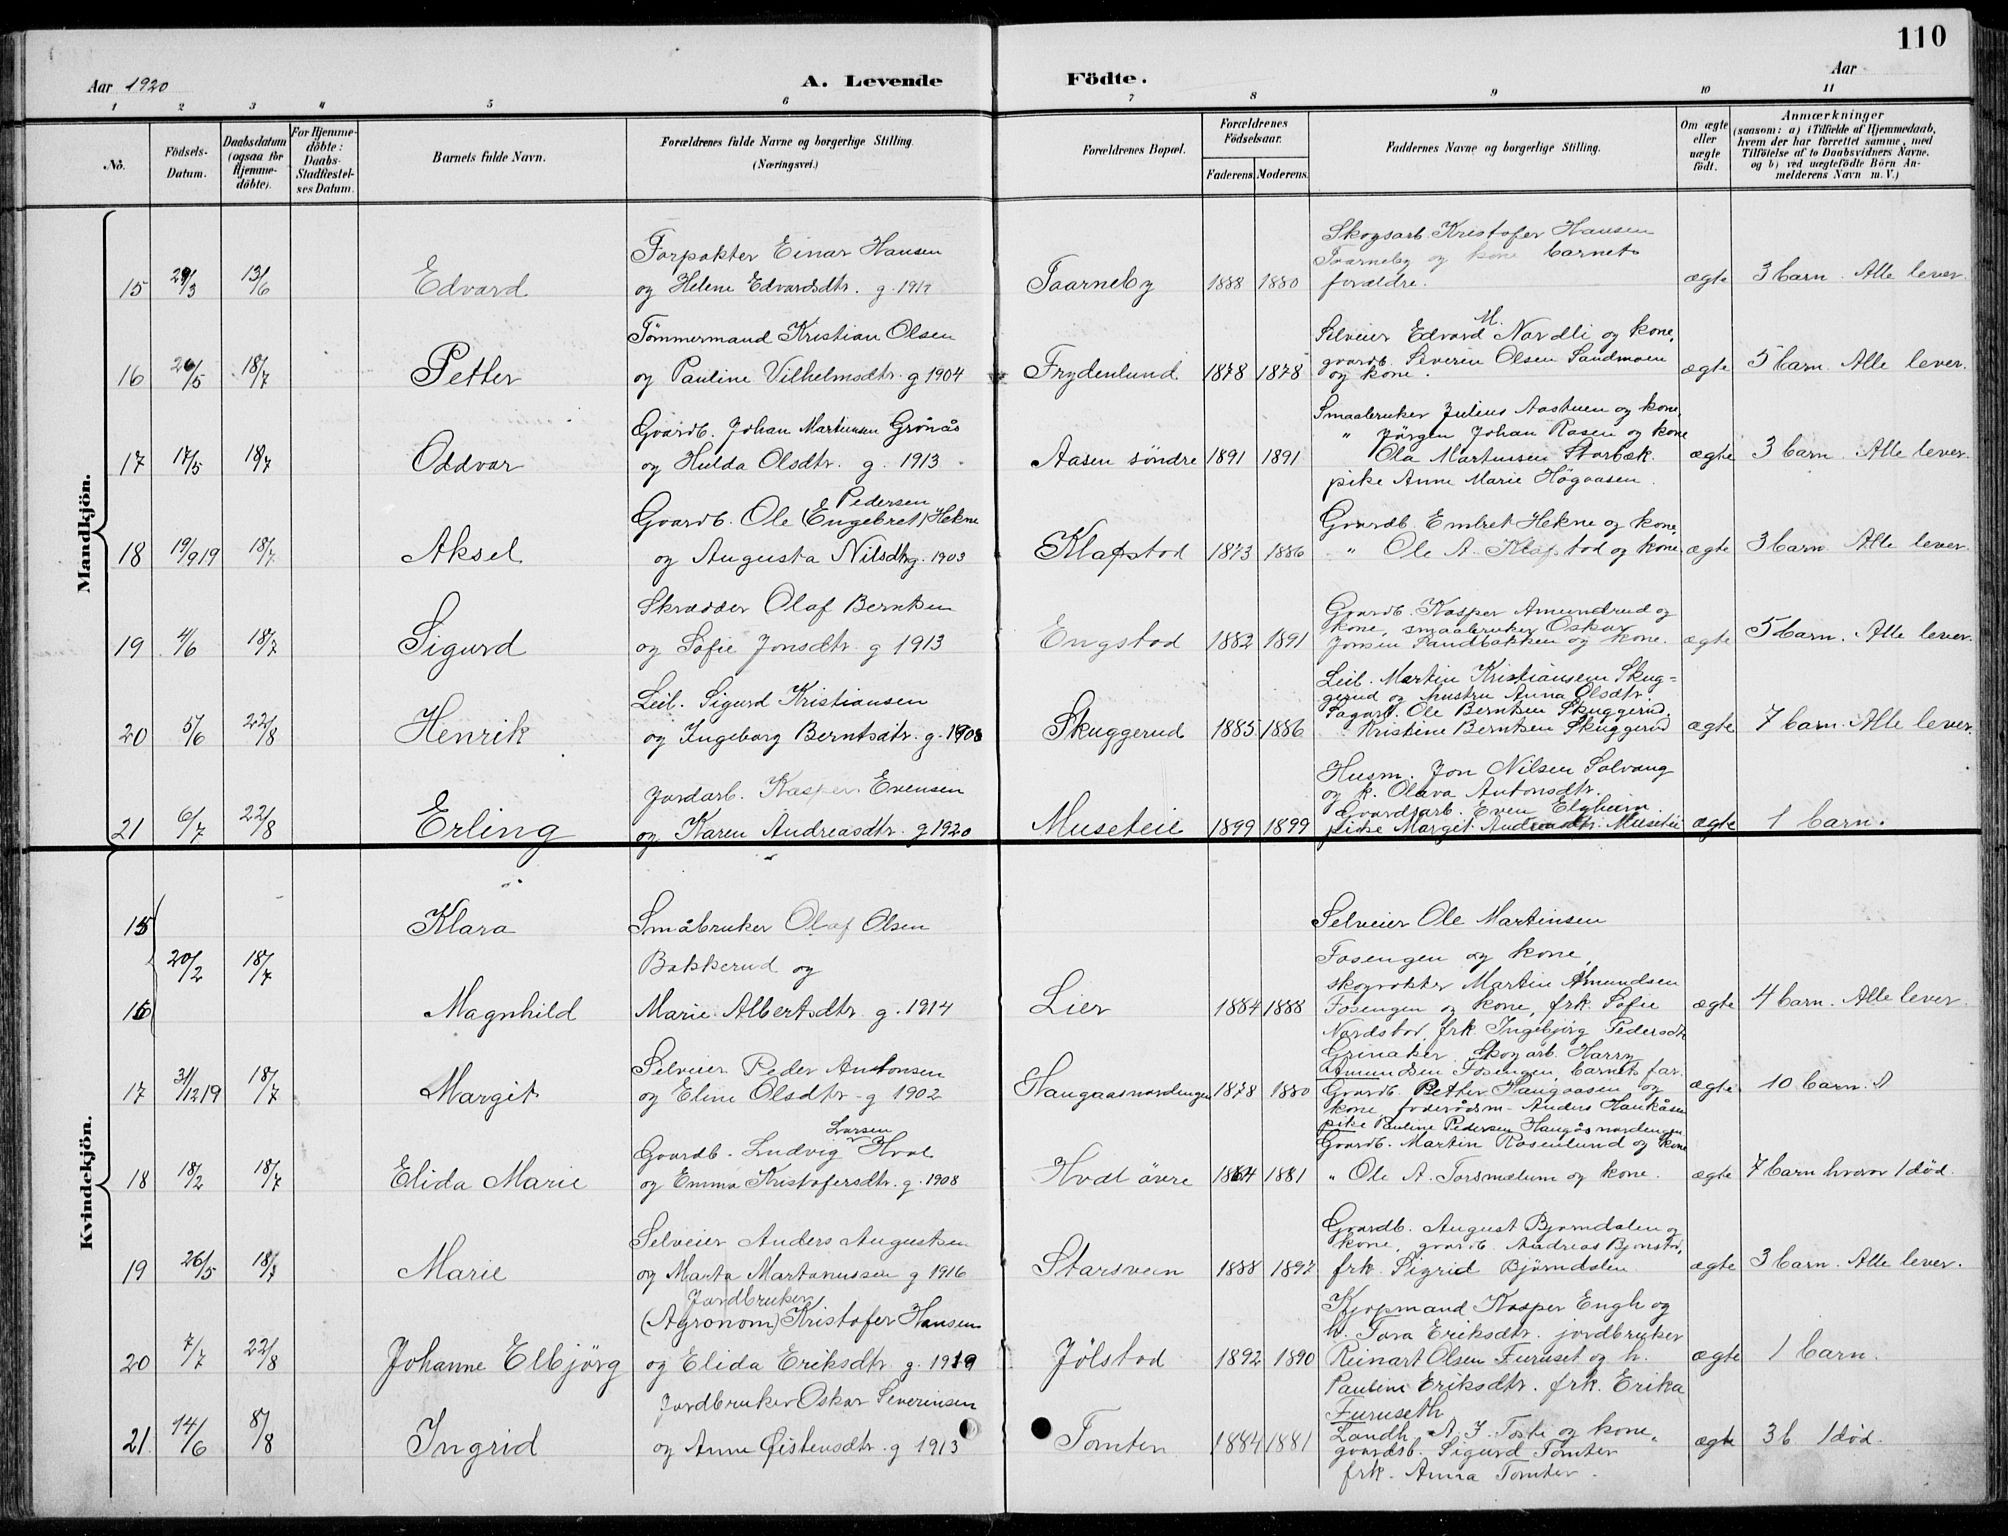 110
Aar 1920
A. Levende
Födte.
Aar
1 2 3 4 5 6 7 8 9 10 11
No.
Födsels-
Datum.
Daabsdatum
(ogsaa for
Hjemme-
döbte).
For Hjemme-
döbte:
Daabs-
Stadfæstel-
ses Datum.
Barnets fulde Navn.
Forældrenes fulde Navne og borgerlige Stilling.
(Næringsvei.)
Forældrenes Bopæl.
Forældrenes
Födselsaar.
Faderens. Moderens.
Faddernes Navne og borgerlige Stilling.
Om ægte
eller
uægte
födt.
Anmærkninger
(saasom: a) i Tilfælde af Hjemmedaab,
hvem der har forrettet samme, med
Tilföielse af to Daabsvidners Navne.
og b) ved uægtefödte Börn An-
melderens Navn m. V.)
Mandkjön.
15 29/3 13/6 Edvard
Forpakter Einar Hansen
og Helene Edvardsdtr. g. 1912
Taarneby 1888 1880
Skogsarb. Kristofer Hansen
Taarneby og kone barnets
forældre.
ægte 3 barn. Alle lever.
16 20/5 18/7 Petter
Tømmermand Kristian Olsen
og Pauline Vilhelmsdtr. g 1904
Frydenlund 1878 1878
Selveier Edvard M. Nordli og kone,
gaardb. Severin Olsen Sandmoen
og kone.
ægte 5 barn. Alle lever.
17 17/5 18/7 Oddvar
Gaardb. Johan Martinsen Grönås
og Hulda Olsdtr. g. 1913
Aasen söndre 1891 1891
Smaabruker Julius Aastuen og kone,
" Jörgen Johan Rosen og kone
Ola Martinsen Storbæk.
pike Anne Marie Högaasen.
ægte 3 barn. Alle lever.
18 19/9 19 18/7 Aksel
Gaardb. Ole Pedersen (Engebret) Hekne
og Augusta Nilsdtr. g. 1903
Klafstad 1873 1886
Gaardb. Embret Hekne og kone,
" Ole A. Klafstad og kone
ægte 3 barn. Alle lever.
19 4/6 18/7 Sigurd
Skrædder Olaf Berntsen
og Sofie Jonsdtr. g 1913
Engstad 1882 1891
Gaardb. Kasper Amundrud og
kone, smaabruker Oskar
Jonsen Sandbakken og kone.
ægte 5 barn. Alle lever.
20 5/6 22/8 Henrik
Leil. Sigurd Kristiansen
og Ingeborg Berntsdtr. g. 1908
Skuggerud 1885 1886
Leil. Martin Kristiansen Skug=
gerud og hustru Anna Olsdtr.
Sagarb. Ole Berntsen Skuggerud.
Kristine Berntsen Skuggerud
ægte 7 barn. Alle lever.
21 6/7 22/8 Erling
Jordarb. Kasper Evensen
og Karen Andreasdtr. g 1920
Museteie 1899 1899
Husm. Jon Nilsen Solvang
og k. Olava Antonsdtr.
Gaardsarb. Even Elgheim
pike Margit Andreasdtr. Museteie
ægte 1 barn.
Kvindekjön.
15 Klara
20/2 18/7
16 Magnhild
Småbruker Olaf Olsen
Bakkerud og
Marie Albertsdtr. g. 1914
Lier 1884 1888
Selveier Ole Martinsen
Fosengen og kone,
skogvokter Martin Amundsen
Fosengen og kone, frk. Sofie
Nordstad, frk. Ingebjörg Pedersdtr
Grinaker, Skogarb. Harry
Amundsen Fosengen, barnets far.
ægte 4 barn. Alle lever.
17 31/12 19 18/7 Margit
Selveier Peder Antonsen
og Eline Olsdtr. g 1902
Haugaasnordengen 1878 1880
Gaardb. Petter Haugaasen og
kone, föderådsm. Anders Haukåsen
pike Pauline Pedersen Haugåsnordengen
ægte 10 barn.
18 18/2 18/7 Elida Marie
Gaardb. Ludvig Larsen Hval
og Emma Kristofersdtr. g. 1908
Hval övre 1884 1881
Gaardb. Martin Rosenlund og kone
" Ole A. Torsmælum og kone.
ægte 7 barn hvorav 1 död.
19 26/5 18/7 Marie
Selveier Anders Augustsen
og Marta Martinussen g 1916
Starsvein 1888 1892
Gaardb. August Bjørndalen og
kone, gaardb. Andreas Bjonstad,
frk. Sigrid Björndalen.
ægte 3 barn. Alle lever.
20 7/7 22/8 Johanne Elbjörg
Jordbruker
(Agronom) Kristofer Hansen
og Elida Eriksdtr. g. 1919
Jölstad 1892 1890
Kjøpmand Kasper Engh og
h. Tora Eriksdtr. jordbruker
Reinart Olsen Furuset og h.
Pauline Eriksdtr. frk. Erika
Furuseth
ægte 1 barn.
21 14/6 8/8 Ingrid
Jordbruker Oskar Severinsen
og Anne Øistensdtr. g 1913
Tomten 1884 1881
Landh. A. J. Toste og kone,
gaardb. Sigurd Tomter
frk. Anna Tomter.
ægte 3 b. 1 död.